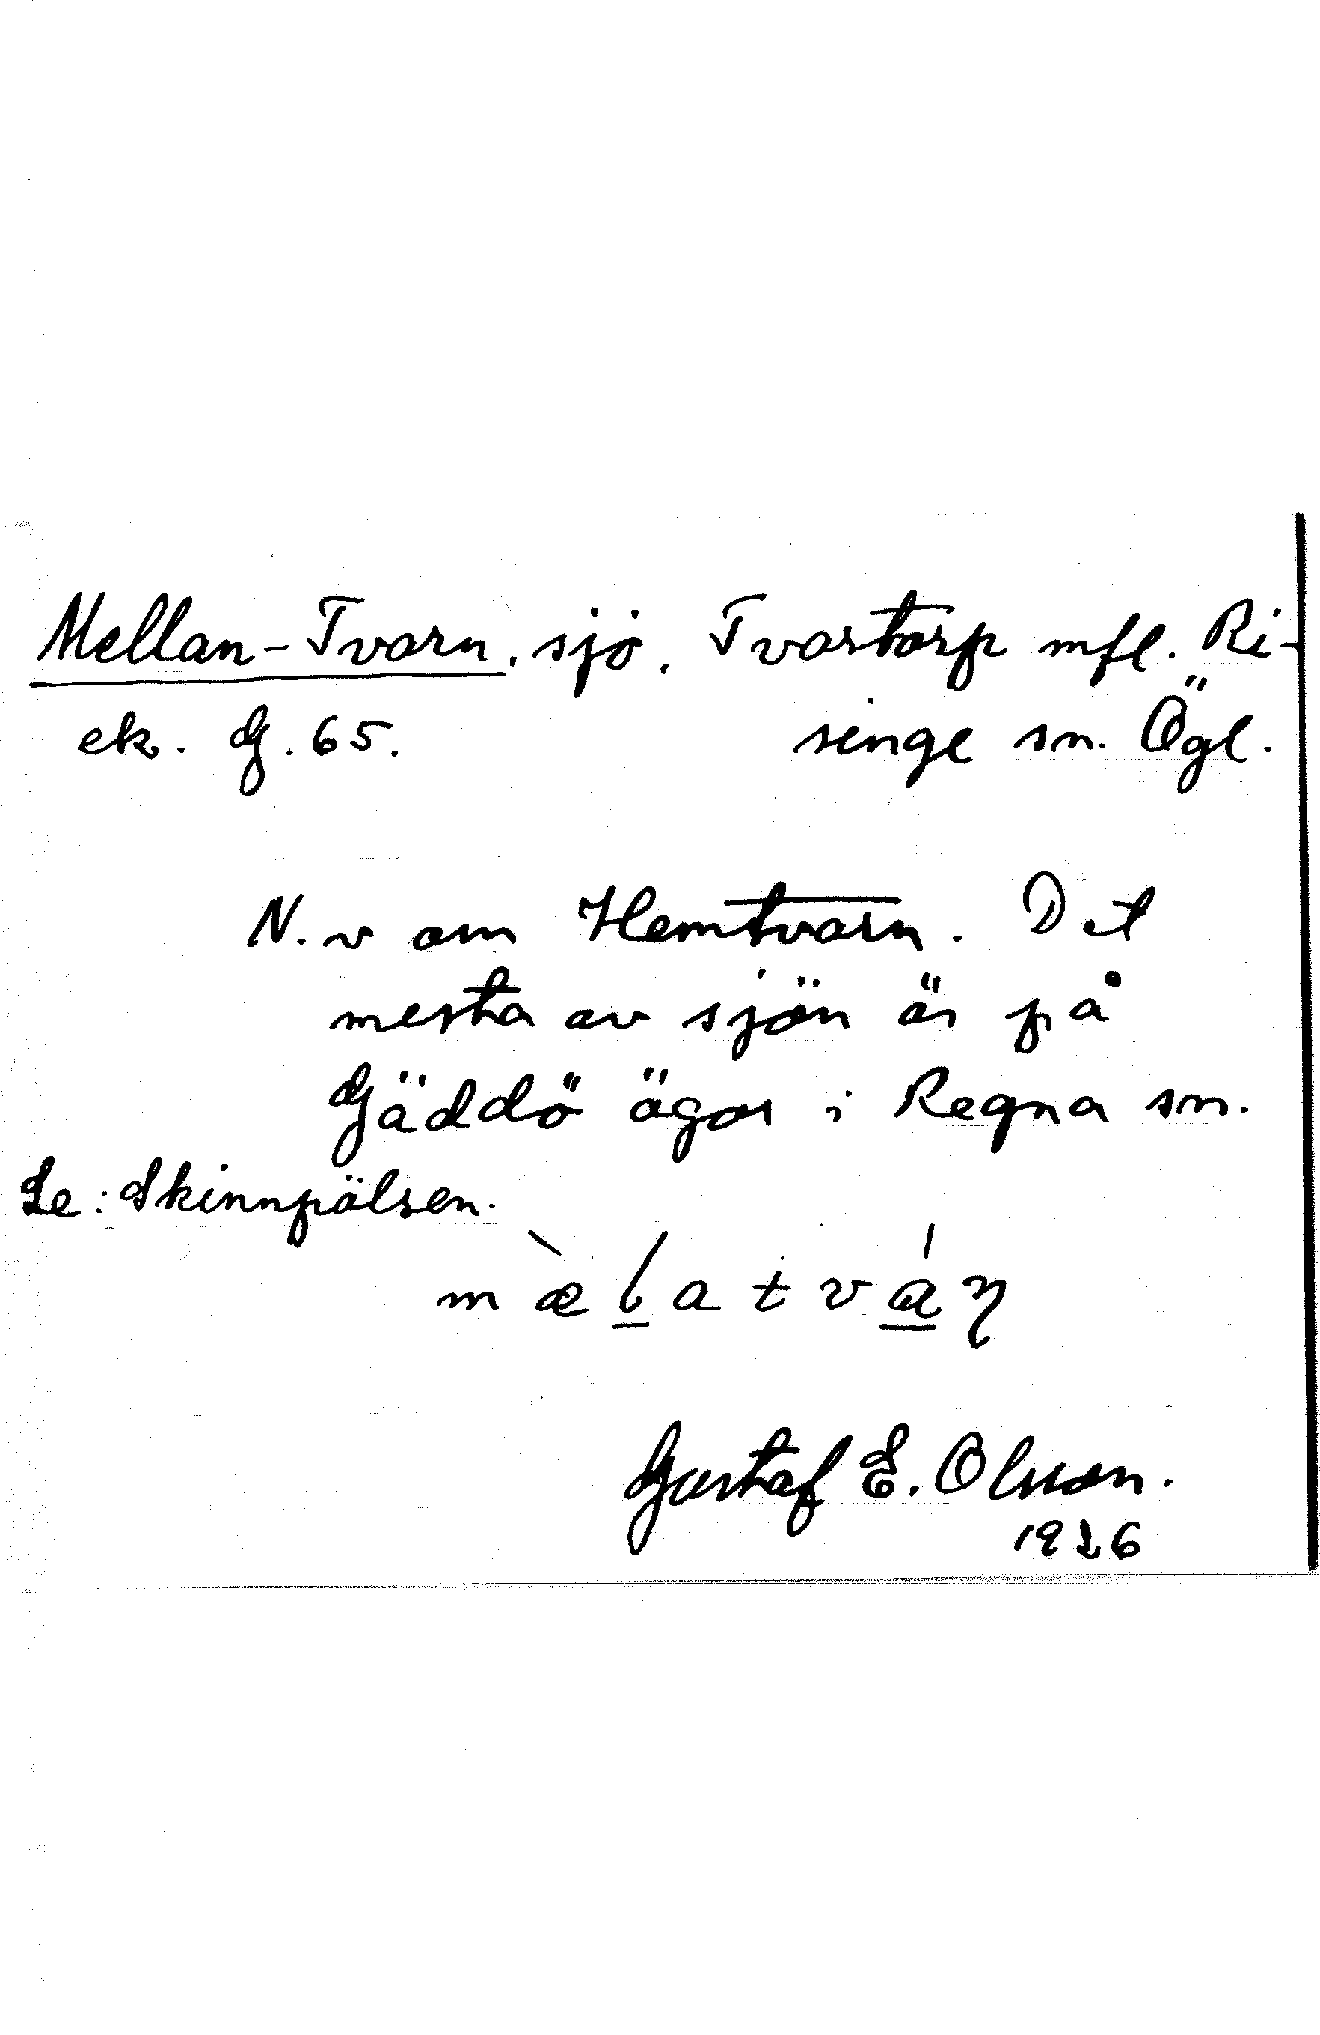 Mellan-Tvarn, sjö. Tvartorp mfl. Ri-
ek. G. 65. singe sn. Ögl.
N. v om Hemtvarn. Det
mesta av sjön är på
Gäddö ägor i Regna sn.
Se: Skinnpälsen.
Gustaf E. Olsson.
1926